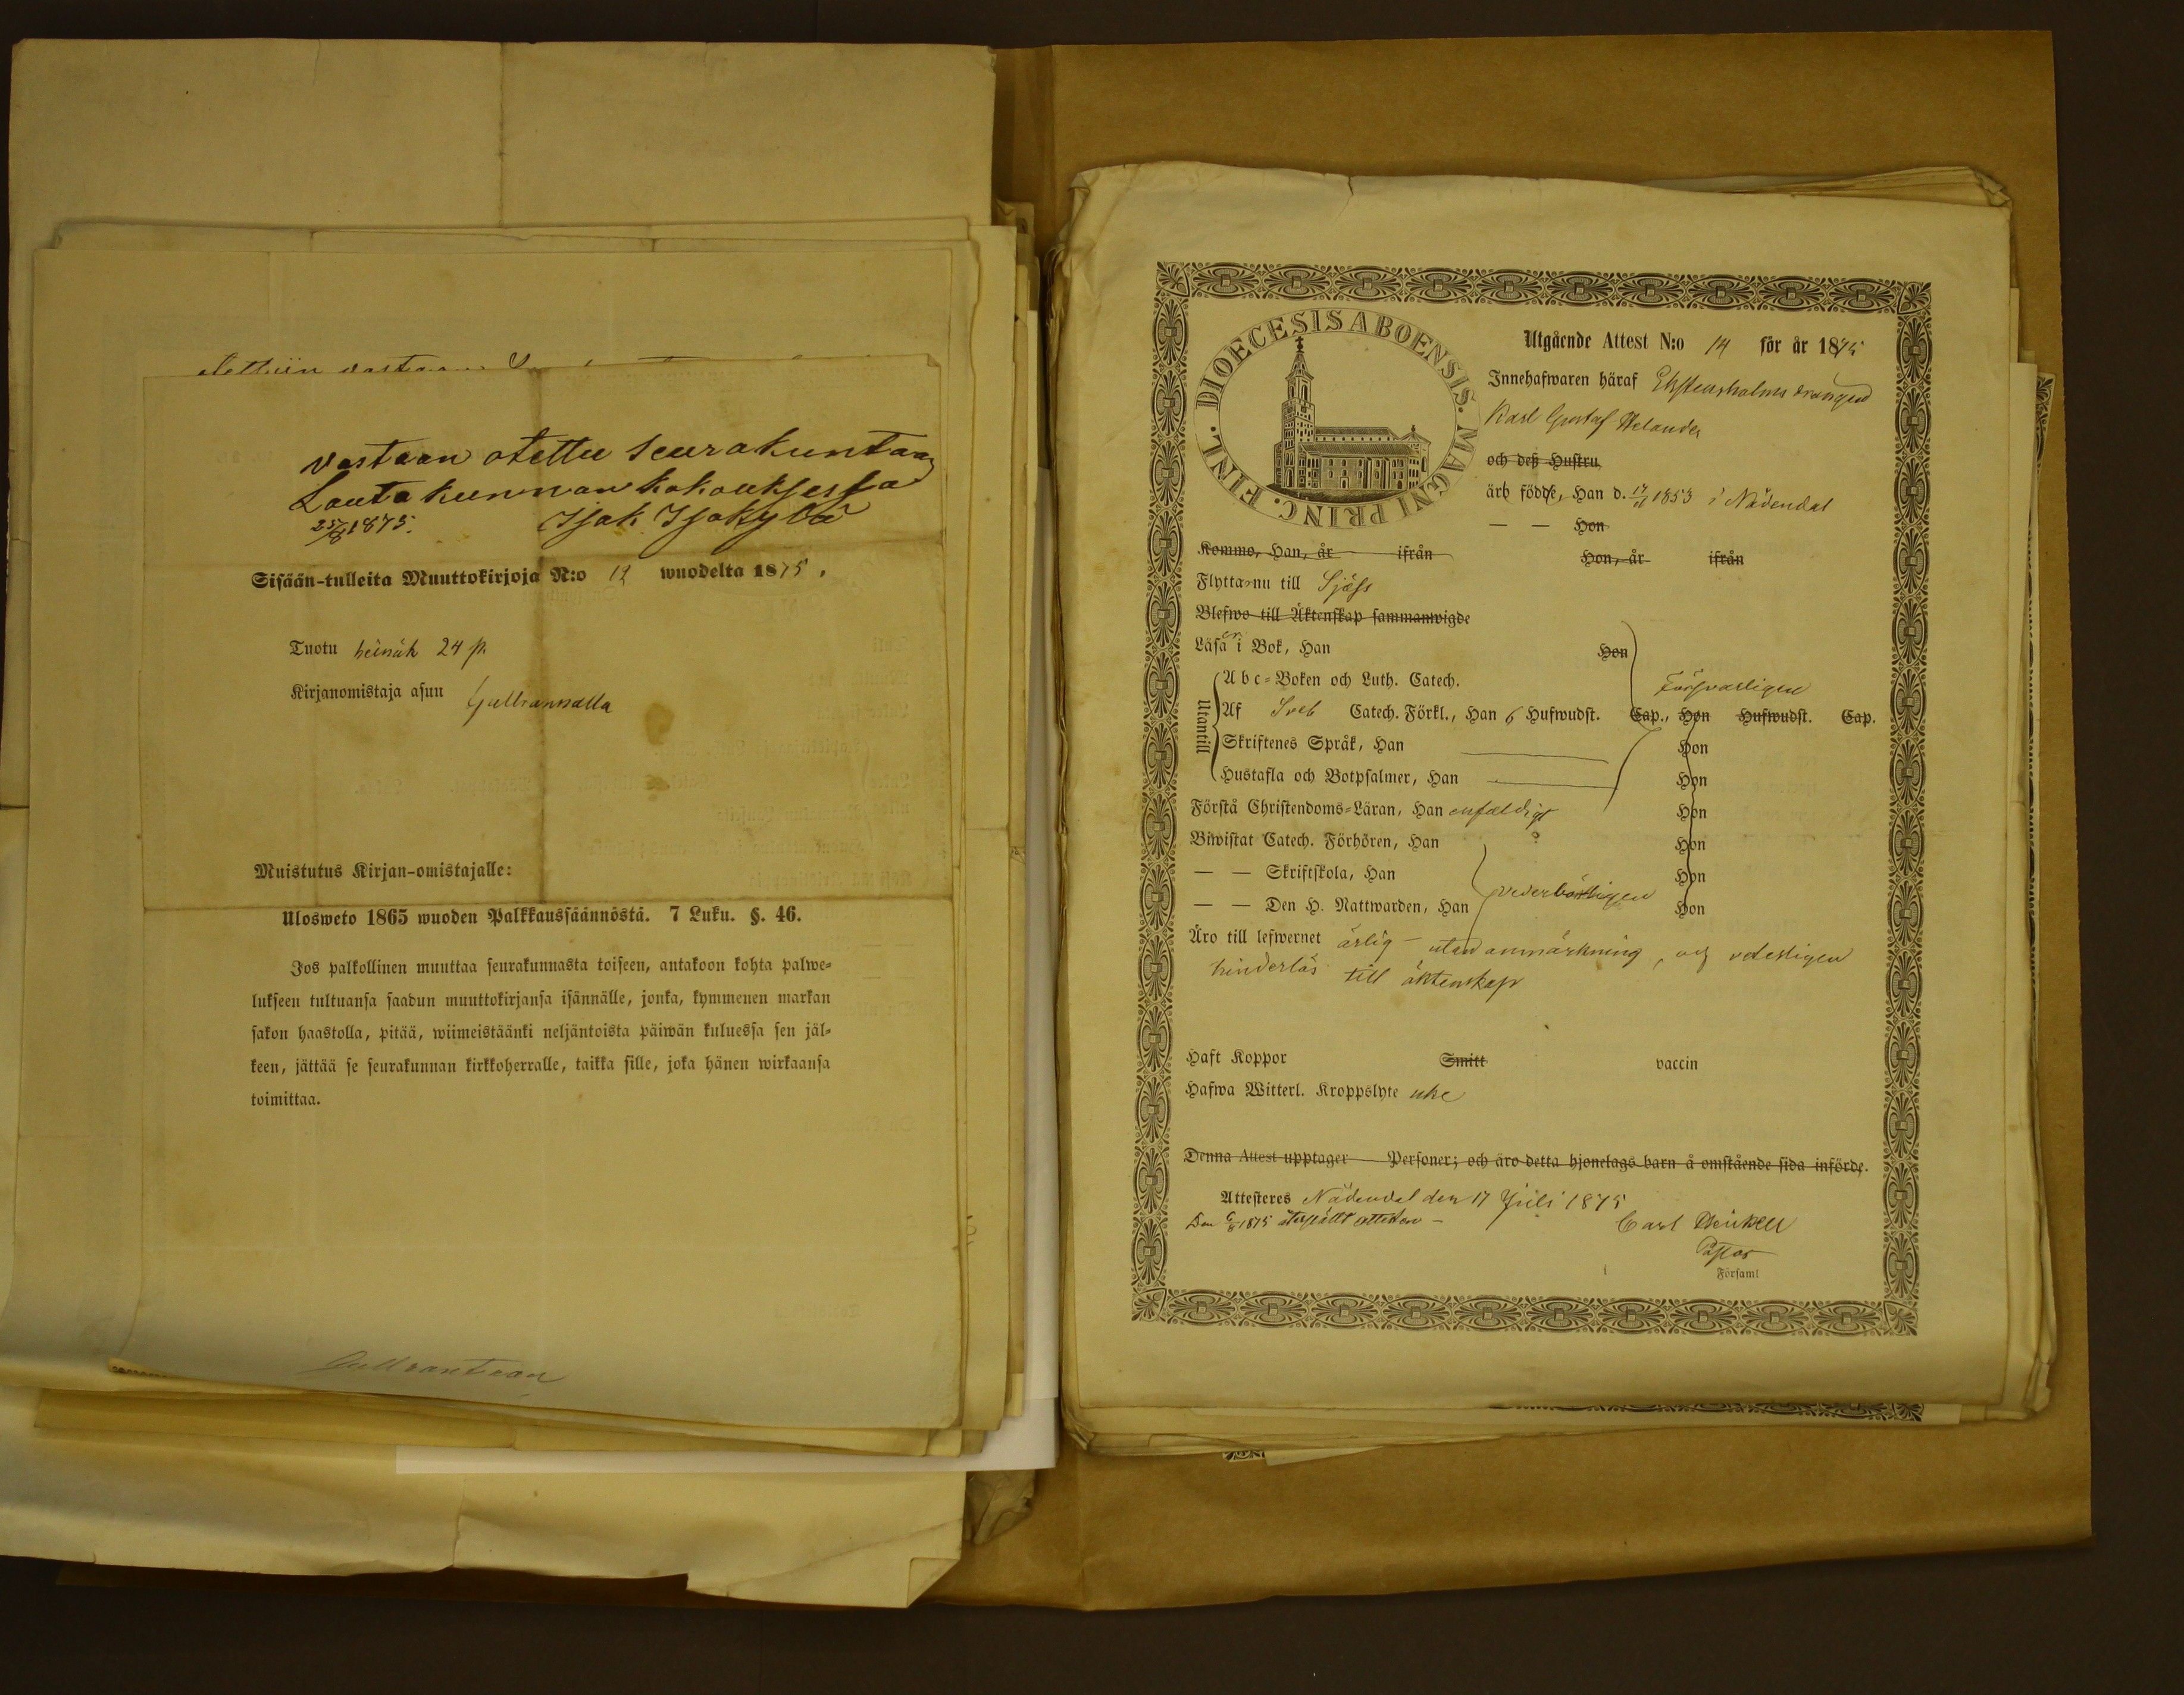 vastaan otettu seurakuntaan
Lautakunnan kokouksessa
25/8 1875. Isak Isokylä
Sisään-tulleita Muuttokirjoja N:o 12 wuodelta 1875.
Tuotu heinäk 24 p.
Kirjanomistaja asuu Gullrannalla
Muistutus Kirjan-omistajalle:
Ulosweto 1865 wuoden Palkkaussäännöstä. 7 Luku. §. 46.
Jos palkollinen muuttaa seurakunnasta toiseen, antakoon kohta palwe-
lukseen tultuansa saadun muuttokirjansa isännälle, jonka, kymmenen markan
sakon haastolla, pitää, wiimeistäänki neljäntoista päiwän kuluessa sen jäl-
keen, jättää se seurakunnan kirkkoherralle, taikka sille, joka hänen wirkaansa
toimittaa.
Gullrantaan
DIOECESIS ABOENSIS. MAGNI PRINC. FINL.
Utgående Attest N:o 14 för år 1875
Innehafwaren häraf drängen
Karl Gustaf Welander
och deß Hustru
är född, Han d. 1853 i Nådendal
— — Hon
Kommo, Han, år ifrån Hon, år ifrån
Flyttar nu till
Blefwo till Äktenskap sammanwigde
Läsa i Bok, Han Hon
Utantill
Abc-Boken och Luth. Catech. Försvarligen
Af Sveb Catech. Förkl., Han 6 Hufwudst. Cap., Hon Hufwudst. Cap.
Skriftenes Språk, Han Hon
Hustafla och Botpsalmer, Han Hon
Förstå Christendoms-Läran, Han enfaldigt Hon
Biwistat Catech. Förhören, Han ? Hon
— — Skriftskola, Han Hon
— — Den H. Nattwarden, Han vederbörligen Hon
Äro till lefwernet ärlig – utan anmärkning, och veterligen
hinderlös till äktenskap
Haft Koppor Smitt vaccin
Hafwa Witterl. Kroppslyte icke
Denna Attest upptager Personer; och äro detta hjonelags barn å omstående sida införde.
Attesteres Nådendal den 17 Juli 1875
Den 6/8 1875 återställt attesten –
Carl
Pastor
Församl